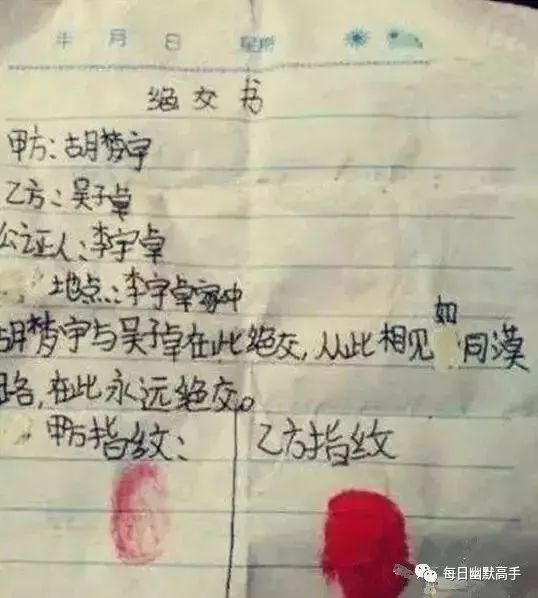 年 月 日 星期
绝交书
甲方:胡梦宇
乙方:吴子卓
公证人:李宇卓
地点:李宇卓家中
胡梦宇与吴子卓在此绝交,从此相见如同漠
路,在此永远绝交。
甲方指纹: 乙方指纹
每日幽默高手